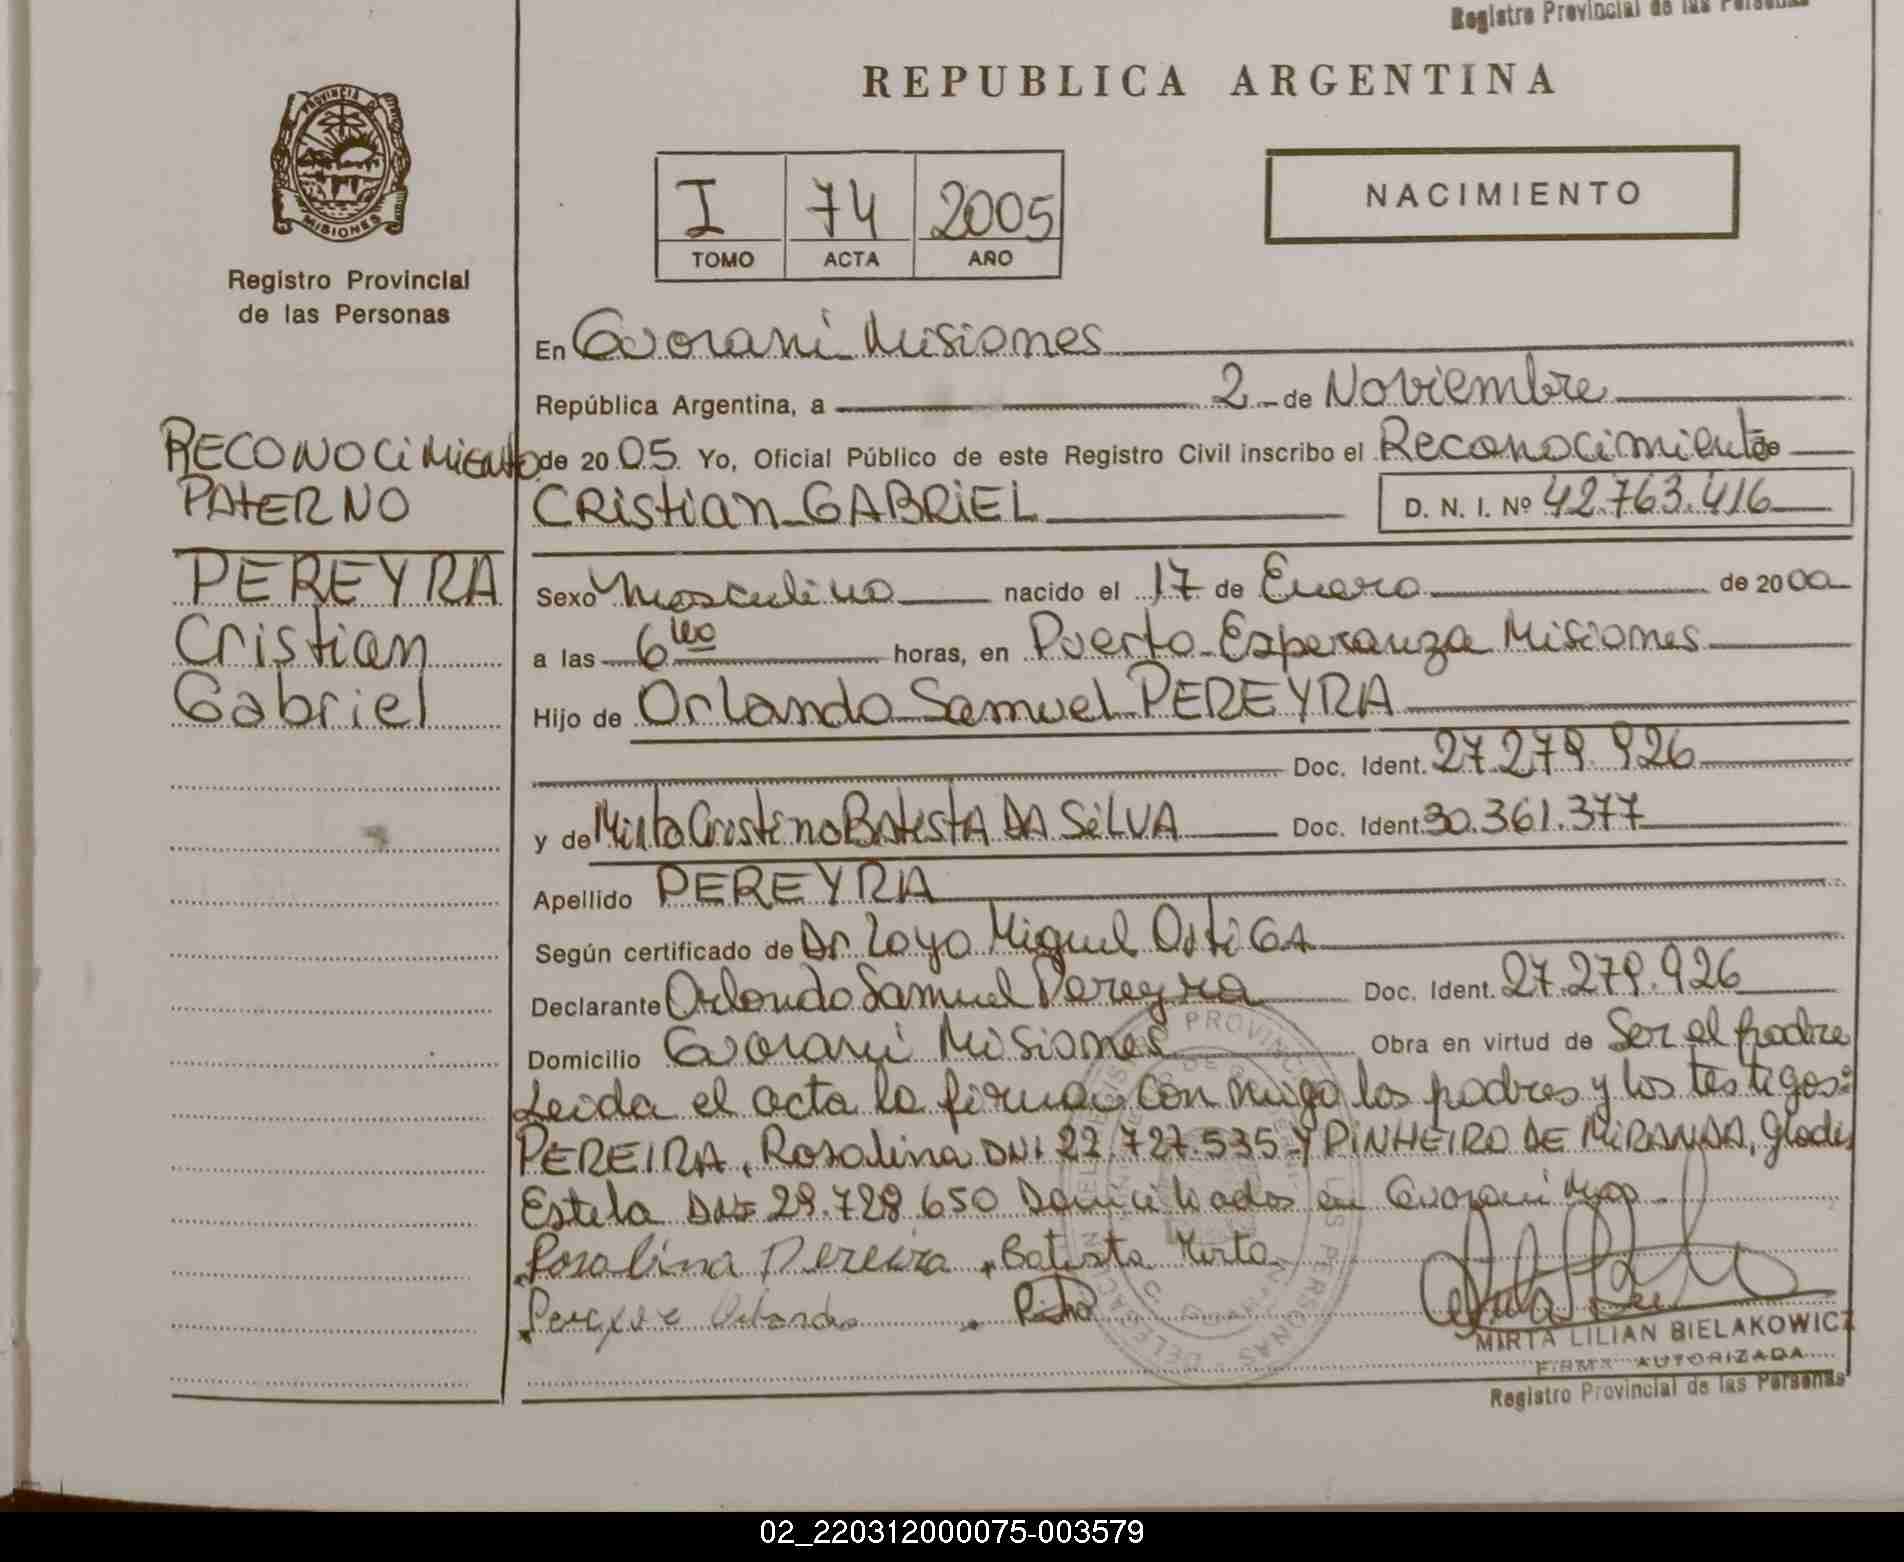 Registro Provincial de las Personas
REPUBLICA ARGENTINA
PROVINCIA DE
MISIONES
Registro Provincial
de las Personas
I 74 2005
TOMO ACTA AÑO
NACIMIENTO
En Guarani Misiones
República Argentina, a 2 de Noviembre
RECONOCIMIENTO
PATERNO
de 2005 Yo, Oficial Público de este Registro Civil inscribo el Reconocimiento de
CRistian GABRiEL D. N. I. Nº 42.763.416
PEREYRA
Cristian
Gabriel
Sexo Masculino nacido el 17 de Enero de 2000
a las 6 horas, en Puerto Esperanza Misiones
Hijo de Orlando Samuel PEREYRA
Doc. Ident. 27.279.926
y de Mirta Cristina Batista DA SiLVA Doc. Ident. 30.361.377
Apellido PEREYRA
Según certificado de Dr Loyo Miguel
Declarante Orlando Samuel Pereyra Doc. Ident. 27.279.926
Domicilio Guarani Misiones Obra en virtud de Ser el padre
Leida el acta la firman con migo los padres y los testigos:
PEREIRA, Rosalina DNI 22.727.535 Y PINHEIRO DE MiRANDA, Gladis
Estela DNI 29.728.650 Domiciliados en Guarani Mnes
Rosalina Pereira Batista Mirta
Pereyra Orlando
MIRTA LILIAN BIELAKOWICZ
FIRMA AUTORIZADA
Registro Provincial de las Personas
02_220312000075-003579